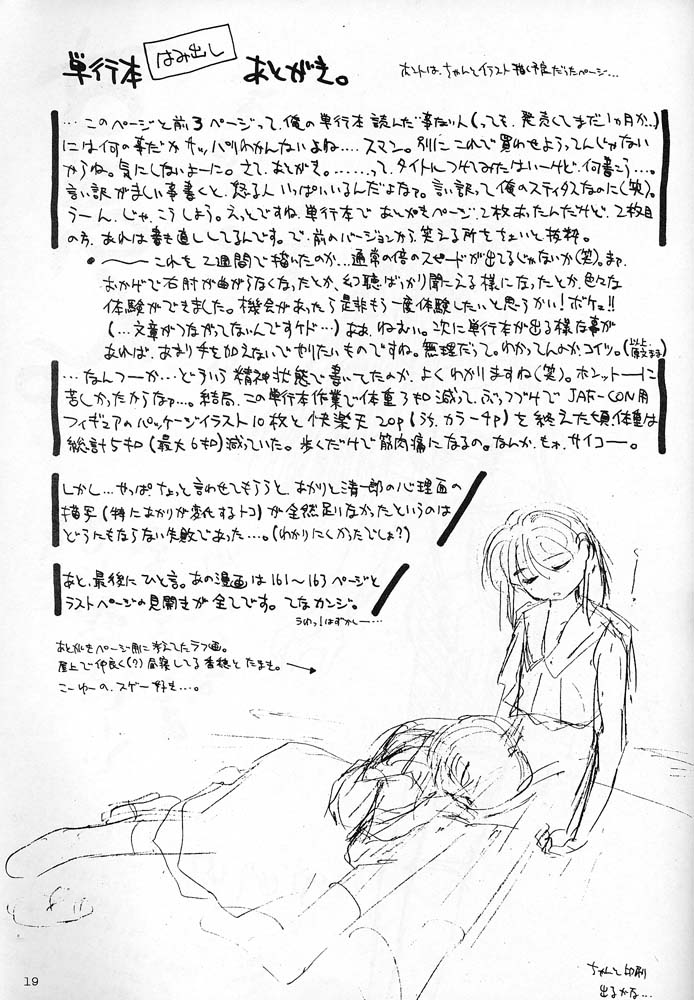 単行本 はみ出し あとがき。
ホントは、ちゃんとイラスト描く予定だったページ…
…このページと前3ページって、俺の単行本読んだ事ない人(っても、発売してまだ1ヵ月か…)
には何の事だかサッパリわかんないよね…。スマン。別にこれで買わせようってんじゃない
からね。気にしないよーに。さて、あとがき。……って、タイトルつけてみたはいーけど、何書こう…。
言い訳がましい事書くと、怒る人いっぱいいるんだよなァ。言い訳って俺のスティタスなのに(笑)。
うーん、じゃ、こうしよう。えっとですね、単行本で あとがきページ、2枚あったんだけど、2枚目
の方、あれは書き直ししてるんです。で、前のバージョンから、笑える所をちょいと抜粋。
●――これを2週間で描いたのか…通常の倍のスピードが出てるじゃないか(笑)。まァ、
おかげで右肘が曲がらなくなったとか、幻聴ばっかり聞こえる様になったとか、色々な
体験ができました。機会があったら是非もう一度体験したいと思うかい!ボケェ!!
(…文章がつながってないんですケド…)ああ、ねむい。次に単行本が出る様な事が
あれば、あまり手を加えないでやりたいものですね。無理だって。わかってんのかコイツ。(以上、原文まま)
…なんつーか…どういう精神状態で書いてたのか、よくわかりますね(笑)。ホンットーに
苦しかったからなァ…。結局、この単行本作業で体重3キロ減って、ぶっつづけで JAF-CON用
フィギュアのパッケージイラスト10枚と快楽天20p(うち、カラー4p)を終えた頃、体重は
総計5キロ(最大6キロ)減っていた。歩くだけで筋肉痛になるの。なんか、もォ、サイコー。
しかし…やっぱ、ちょっと言わせてもらうと、あかりと清一郎の心理面の
描写(特にあかりが変化するトコ)が全然足りなかったというのは
どうにもならない失敗であった…。(わかりにくかったでしょ?)
あと、最後にひと言。あの漫画は161〜163ページと
ラストページの見開きが全てです。てなカンジ。
うわっ!はずかしー…
あとがきページ用に考えてたラフ画。
屋上で仲良く(?)昼寝してる香穂とたまき。
こーゆーの、スゲー好き…。
ちゃんと印刷
出るかな…
19